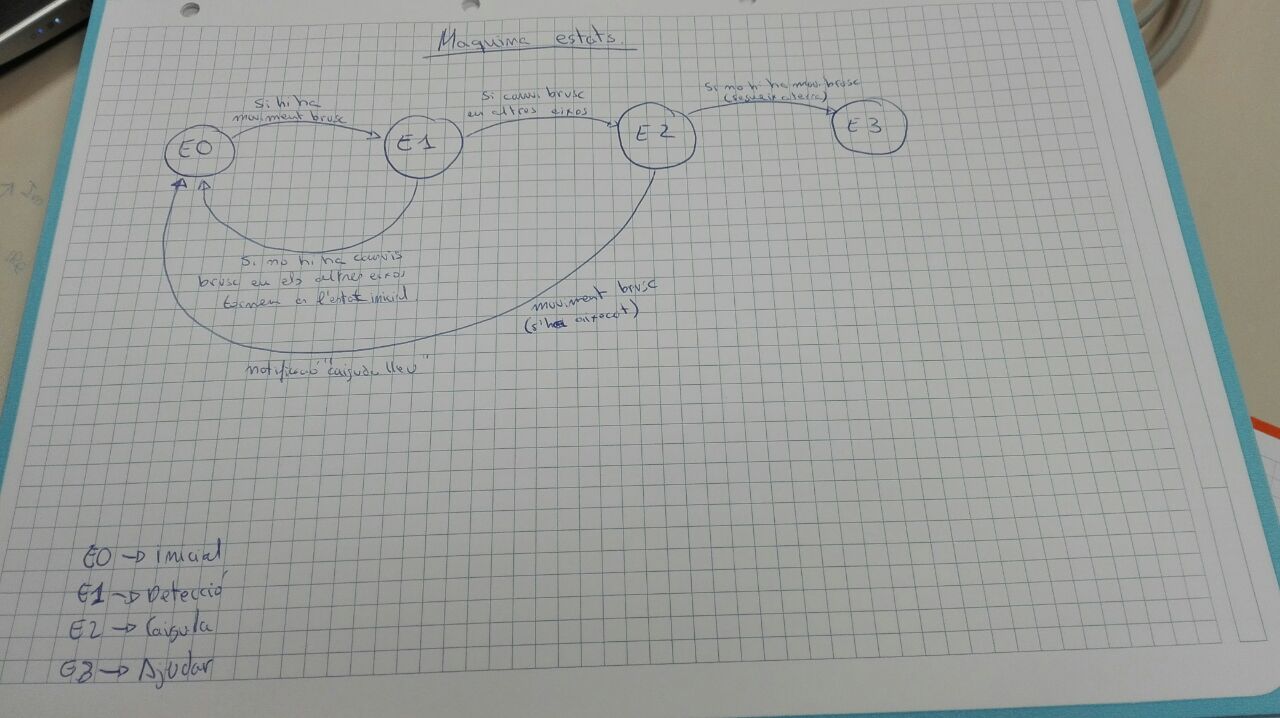 Maquina estats
Si hi ha
moviment brusc
Si canvi brusc
en altres eixos
Si no hi ha mov. brusc
E0
E1
E2
E3
Si no hi ha canvis
brusc en els altres eixos
tornem a l'estat inicial
moviment brusc
(s'ha aixecat)
notificació "caiguda lleu"
E0 → inicial
E1 → Detecció
E2 → Caiguda
E3 → Ajudar